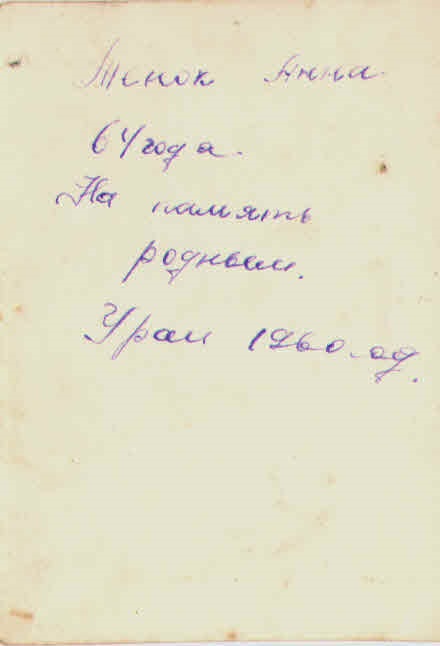 Менок Анна
64 года.
На память
родным.
Урал 1960.од.